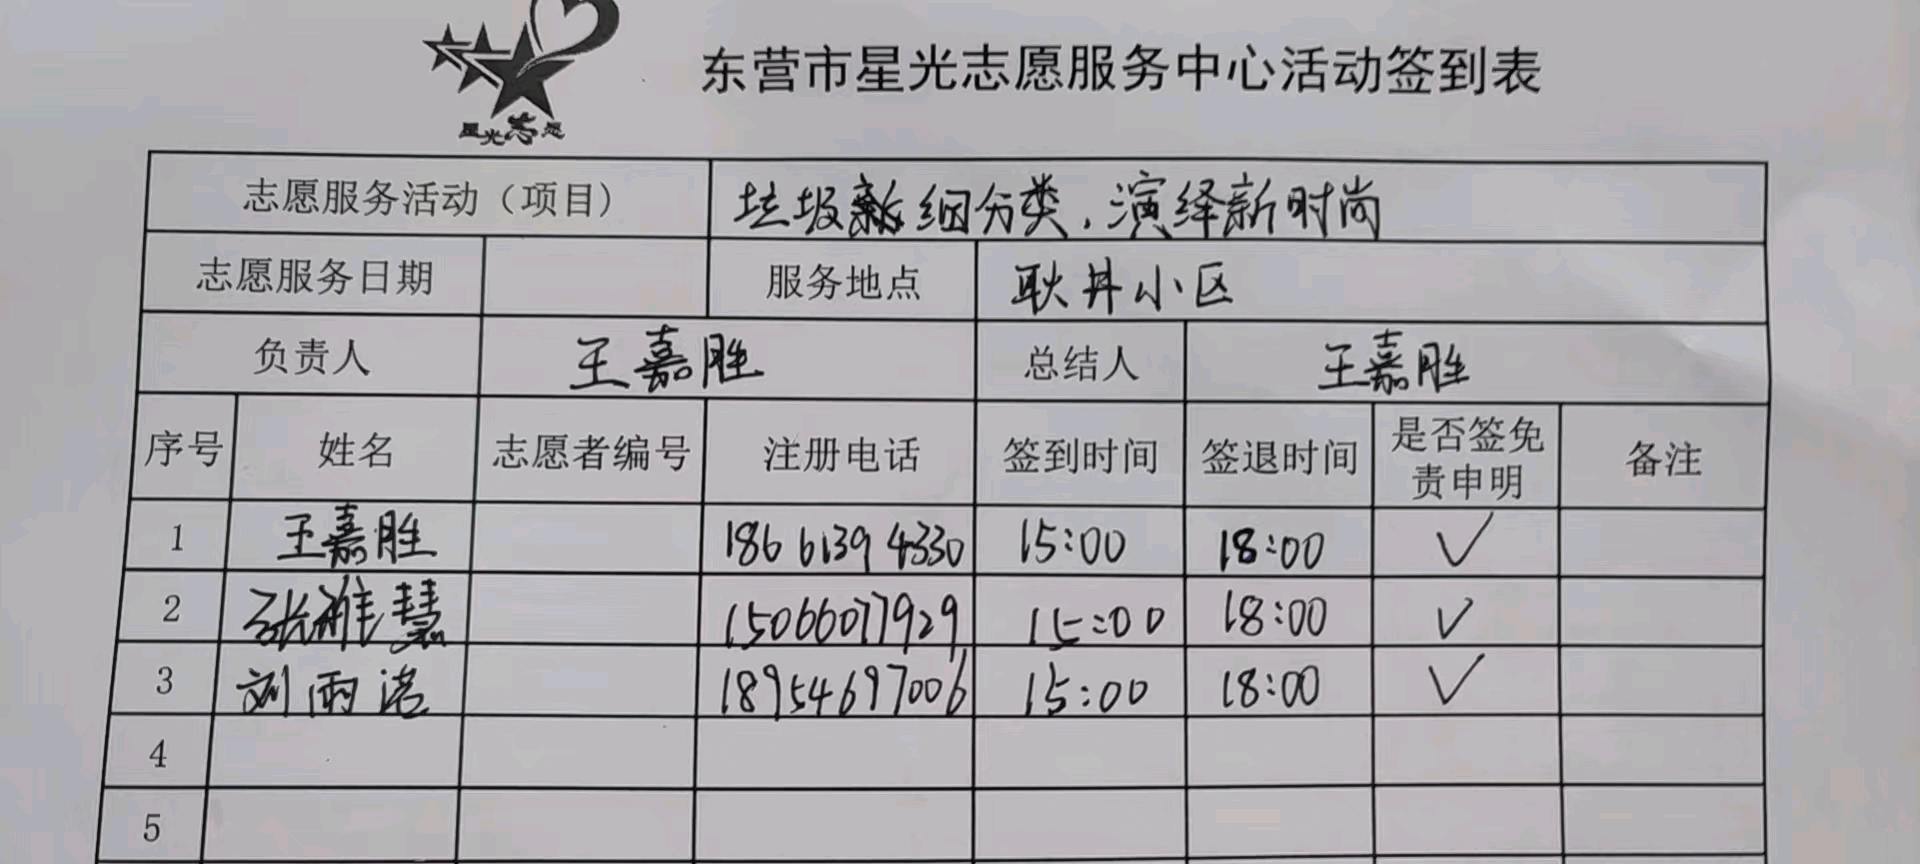 东营市星光志愿服务中心活动签到表
星光志愿
志愿服务活动（项目） 垃圾细分类，演绎新时尚
志愿服务日期 服务地点 耿井小区
负责人 王嘉胜 总结人 王嘉胜
序号 姓名 志愿者编号 注册电话 签到时间 签退时间 是否签免责申明 备注
1 王嘉胜 18661394330 15:00 18:00 ✓
2 张雅慧 15066077929 15:00 18:00 ✓
3 刘雨诺 18954697006 15:00 18:00 ✓
4
5